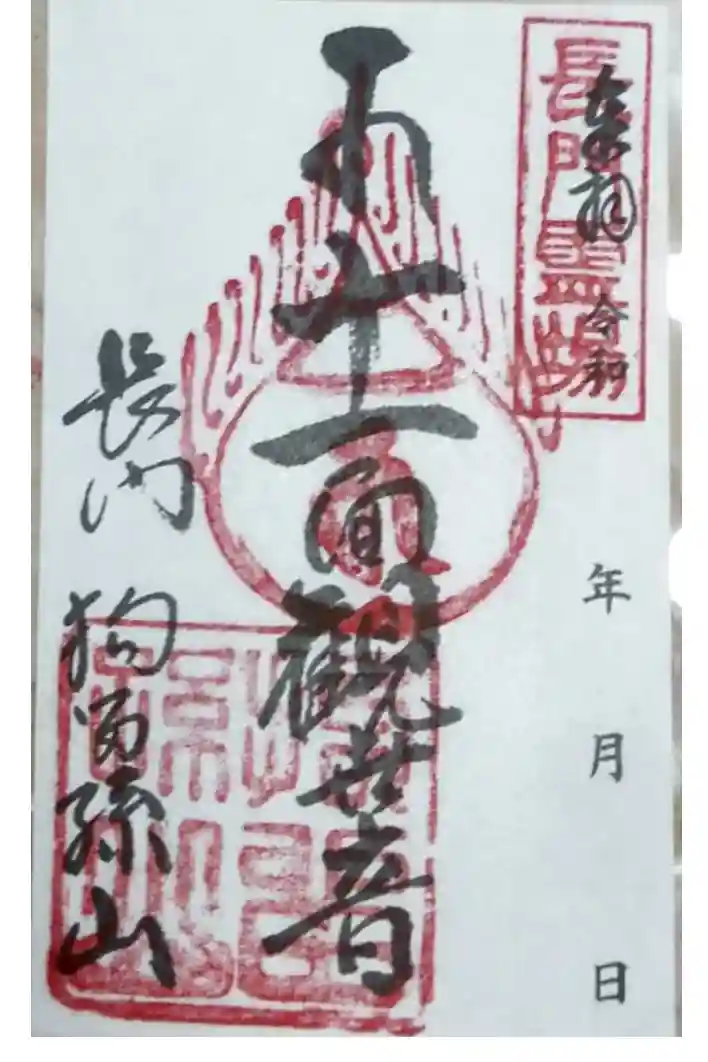 長門霊場
奉拝 令和 年 月 日
十一面観世音
長門 狗留孫山